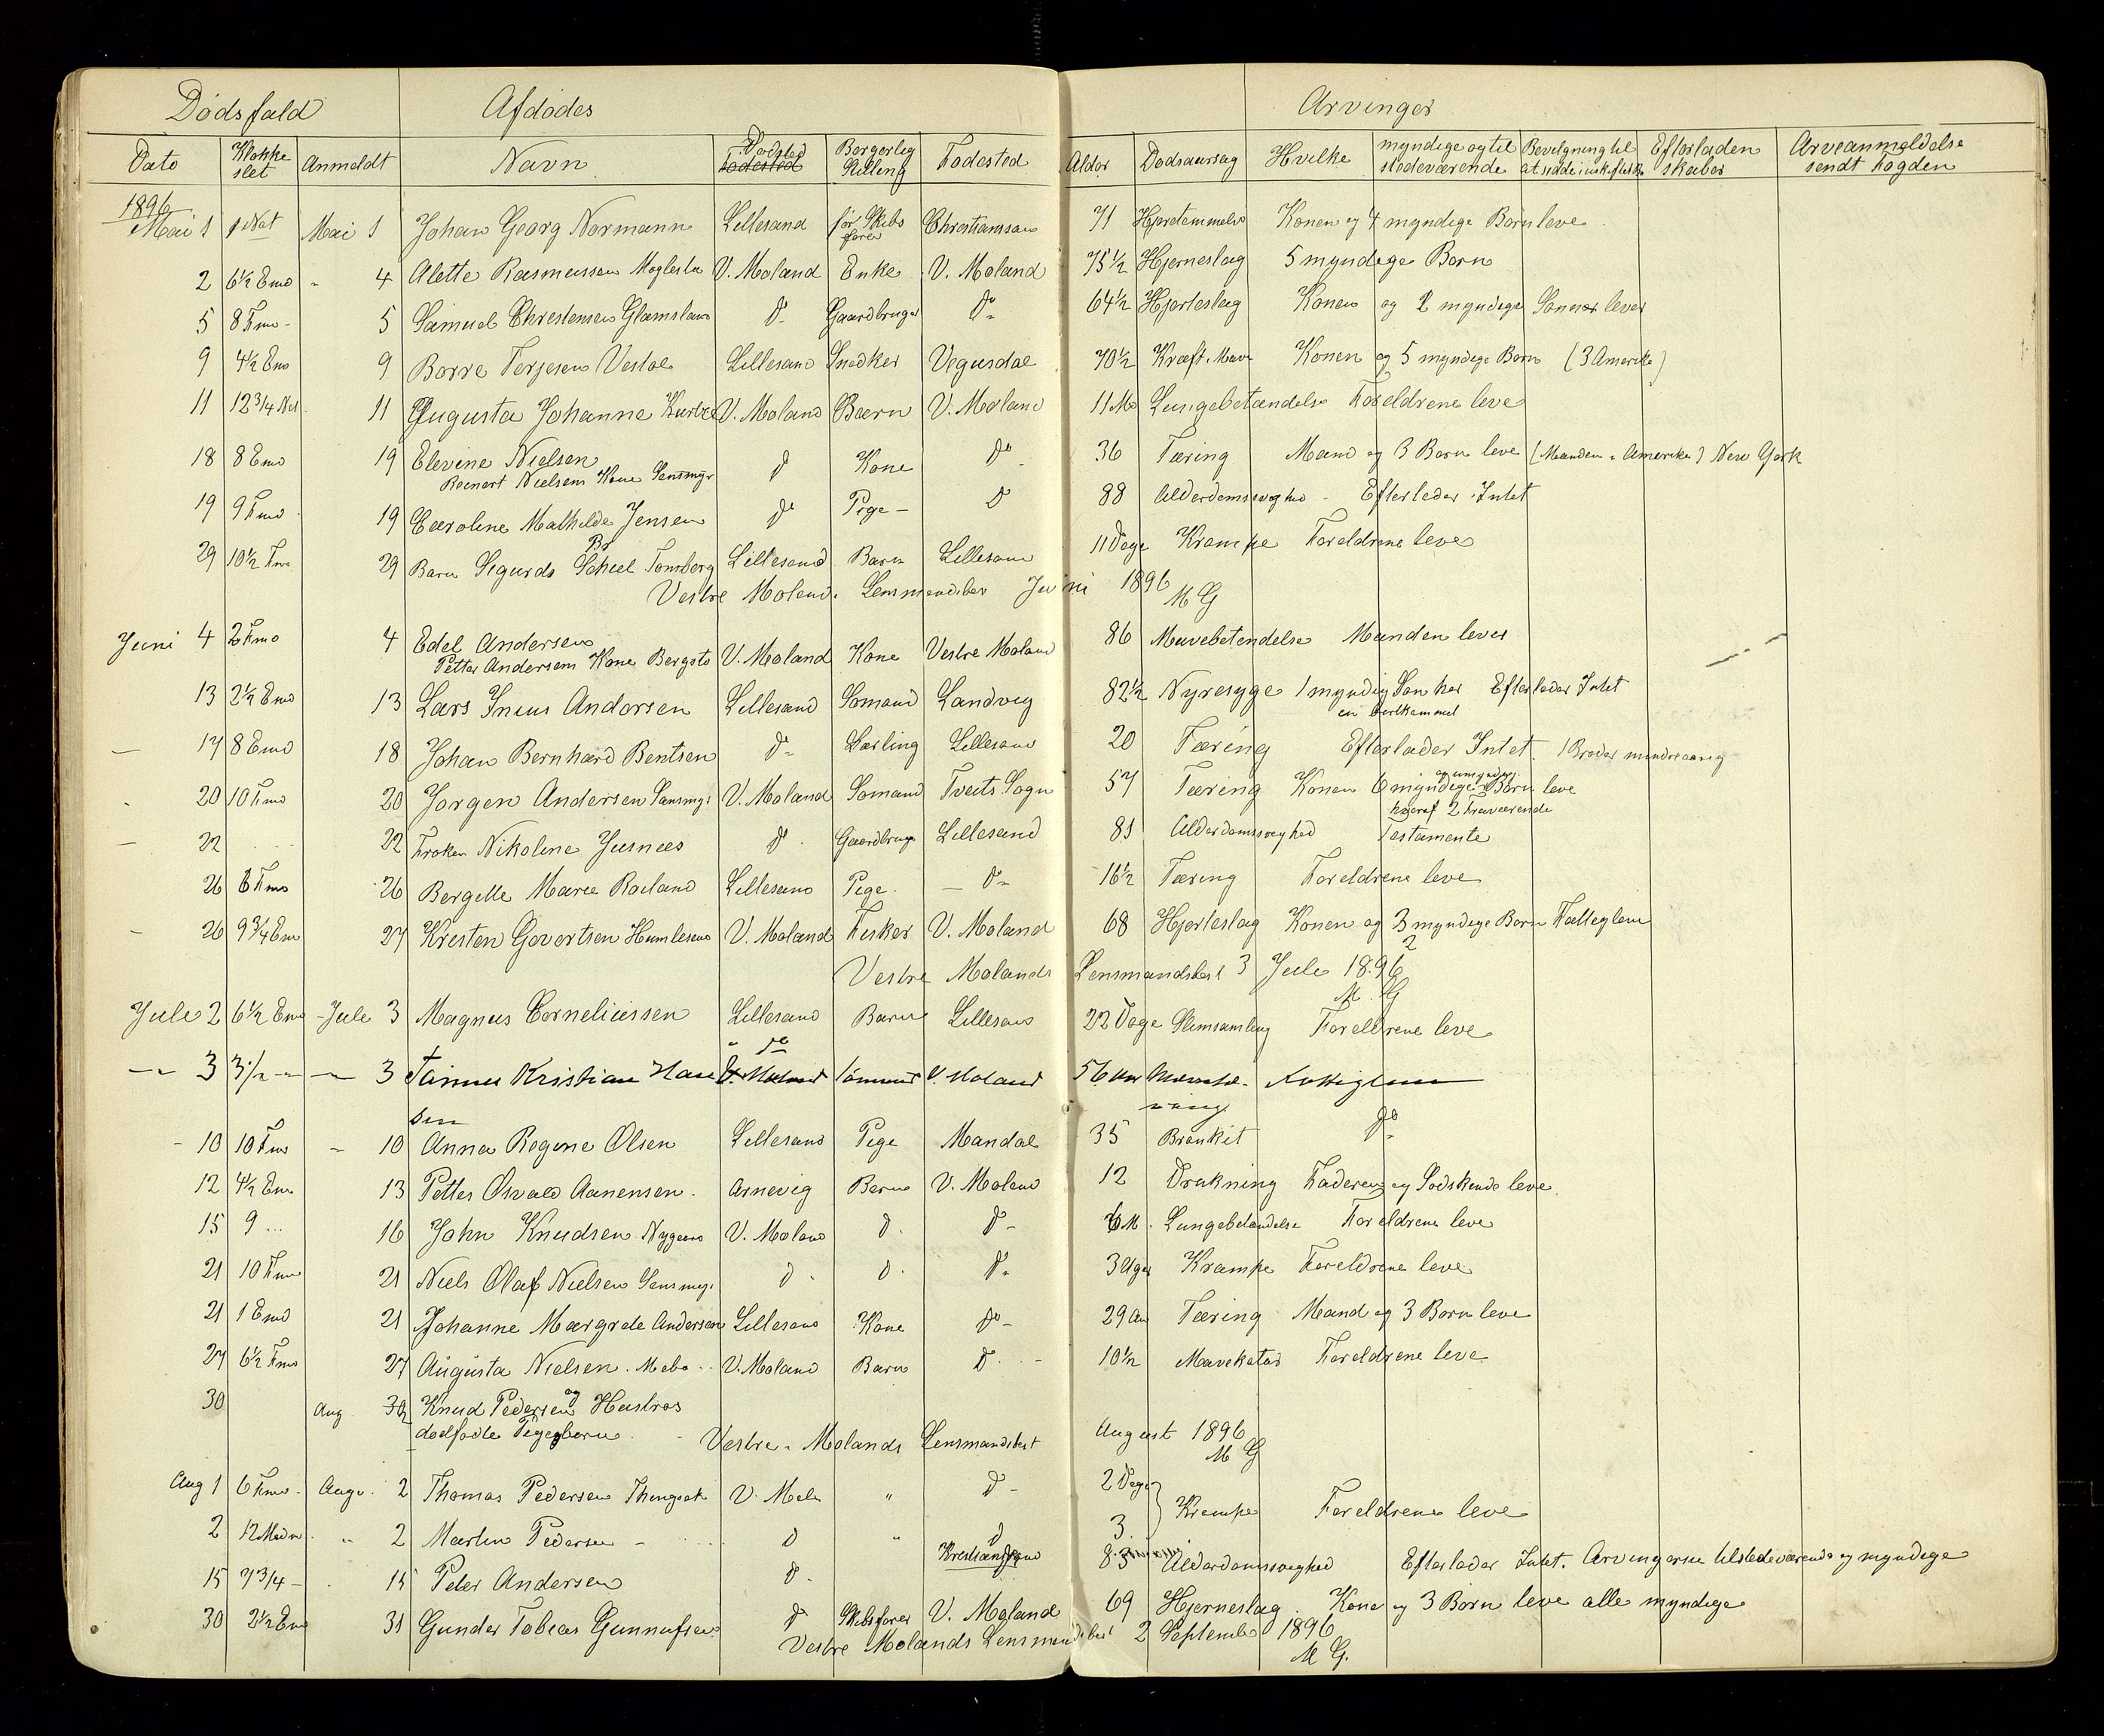 Dødsfald Afdødes Arvinger
Dato Klokke slet Anmeldt Navn Dødsted Fødested Borgerlig Stilling Fødested Alder Dødsaarsag Hvilke myndige og til stedeværende Bevilgning til at sidde i uskiftet Bo Efterladenskaber Arveanmeldelse sendt Fogden
1896
Mai 1 1 Nat Mai 1 Johan Georg Normann Lillesand før. Skibsfører Christianssand 71 Hjertelammelse Konen og 4 myndige Børn leve
2 6½ Emd " 4 Alette Rasmussen V. Moland Enke V. Moland 75½ Hjerneslag 5 myndige Børn
5 8 Fmd 5 Samuel Christensen Glamsland do Gaardbruger do 64½ Hjerteslag Konen og 2 myndige Sønner lever
9 4½ Emd 9 Børre Terjesen Vestøl Lillesand Snedker Vegusdal 70½ Kræft. Mave Konen og 5 myndige Børn (3 Amerika)
11 12¾ Nat 11 Augusta Johanne V. Moland Barn V. Moland 11 Md Lungebetændelse Forældrene leve
18 8 Emd 19 Elevine Nielsen do Kone do 36 Tæring Mand og 3 Børn leve (Manden i Amerika) New York
Reinert Nielsens Kone Sansmyr
19 9 Fmd 19 Caroline Mathilde Jensen do Pige do 88 Alderdomssvaghed Efterlader Intet
29 10½ Fmd 29 Barn Sigurds Tønsberg Lillesand Barn Lillesand 11 Dage Krampe Forældrene leve
Vestre Moland Lensmandsbest Juni 1896
M G
Juni 4 2 Fmd 4 Edel Andersen V. Moland Kone Vestre Moland 86 Mavebetændelse Manden lever
Petter Andersens Kone Bergstø
13 2½ Emd 13 Lars Inius Andersen Lillesand Sømand Landvig 82½ Nyresyge 1 myndig Søn her Efterlader Intet
en bortkommet
17 8 Emd 18 Johan Bernhard Bentsen do Lærling Lillesand 20 Tæring Efterlader Intet. 1 Broder mindreaarig
20 10 Fmd 20 Jørgen Andersen Sansmyr V. Moland Sømand Tveits Sogn 57 Tæring Konen 6 myndige og umyndige Børn leve
hvoraf 2 fraværende
22 22 Frøken Nikoline Jusnæs do Gaardbruger Lillesand 81 Alderdomssvaghed Testamente
26 8 Fmd 26 Bergitte Marie Roiland Lillesand Pige do 16½ Tæring Forældrene leve
26 9¾ Emd 27 Kristen Govertsen Humlesund V. Moland Fisker V. Moland 68 Hjerteslag Konen og 3 myndige Børn Fattiglem
2
Vestre Molands Lensmandsbest 3 Juli 1896
M. G
Juli 2 6½ Emd Juli 3 Magnus Corneliussen Lillesand Barn Lillesand 22 Dage Slimsamling Forældrene leve
3 3½ 3 Tønnes Kristian Hansen V. Moland do Sømand V. Moland 56 Aar Fattiglem
10 10 Fmd 10 Anna Regine Olsen Lillesand Pige Mandal 35 Bronkit do
12 4½ Emd 13 Petter Osvald Aanensen Arnevig Barn V. Moland 12 Drukning Faderen og Sødskende leve
15 9 16 John Knudsen Nygaard V. Moland do do 6 M. Lungebetændelse Forældrene leve
21 10 Fmd 21 Niels Olaf Nielsen Sansmyr do do do 3 Uger Krampe Forældrene leve
21 1 Emd 21 Johanne Margrete Andersen Lillesand Kone do 29 Aar Tæring Mand og 3 Børn leve
27 6½ Fmd 27 Augusta Nielsen. Mebø V. Moland Barn do 10½ Mavekatar Forældrene leve
30 Aug Knud Pedersen og Hustros
dødfødte Pigebarn
Vestre Molands Lensmandsbest August 1896
M G
Aug 1 6 Fmd Aug. 2 Thomas Pedersen V. Mol " do 2 Dage Krampe Forældrene leve
2 12 " 2 Martin Pedersen do " do 3
15 7¾ 15 Peter Andersen do Kristiansand 83 Alderdomssvaghed Efterlader Intet. Arvingerne tilstedeværende og myndige
30 2½ Emd 31 Gunder Tobias Gunnufsen do Skibsfører V. Moland 69 Hjerneslag Kone og 3 Børn leve alle myndige
Vestre Molands Lensmandsbest 2 September 1896
M G.